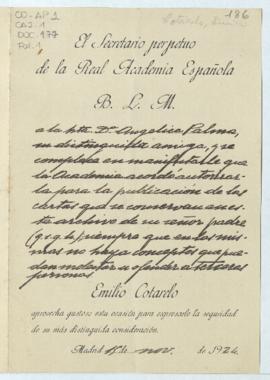 CO-AP1
CAJ. 1
DOC. 177
Fol. 1
186
Cotarelo, Emilio
El Secretario perpetuo
de la Real Academia Española
B. L. M.
a la Srta. Dª Angelica Palma,
su distinguida amiga, y se
complace en manifestarle que
la Academia acordó autorizar
la para la publicación de las
cartas que se conservan en es
te archivo de su señor padre
(q. s. g. h.) siempre que en los mis
mas no haya conceptos que pue
dan molestar u ofender a terceras
personas
Emilio Cotarelo
aprovecha gustoso esta ocasión para expresarle la seguridad
de su más distinguida consideración.
Madrid 15 de nov. de 1924.